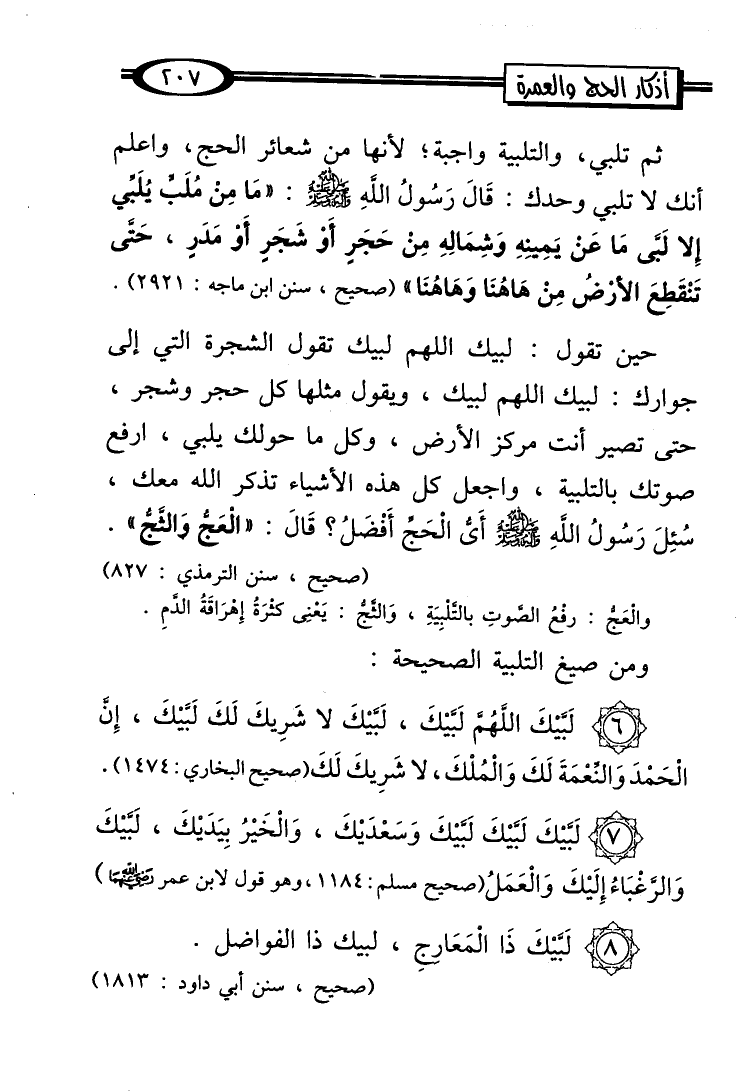 أذكار الحج والعمرة
٢٠٧
ثم تلبي، والتلبية واجبة؛ لأنها من شعائر الحج، واعلم
أنك لا تلبي وحدك : قَالَ رَسُولُ اللَّهِ ﷺ : «مَا مِنْ مُلَبٍّ يُلَبِّي
إِلا لَبَّى مَا عَنْ يَمِينِهِ وَشِمَالِهِ مِنْ حَجَرٍ أَوْ شَجَرٍ أَوْ مَدَرٍ ، حَتَّى
تَنْقَطِعَ الأَرْضُ مِنْ هَاهُنَا وَهَاهُنَا» (صحيح ، سنن ابن ماجه : ٢٩٢١) .
حين تقول : لبيك اللهم لبيك تقول الشجرة التي إلى
جوارك : لبيك اللهم لبيك ، ويقول مثلها كل حجر وشجر ،
حتى تصير أنت مركز الأرض ، وكل ما حولك يلبي ، ارفع
صوتك بالتلبية ، واجعل كل هذه الأشياء تذكر الله معك ،
سُئِلَ رَسُولُ اللَّهِ ﷺ أَىُّ الْحَجِّ أَفْضَلُ؟ قَالَ : «الْعَجُّ وَالثَّجُّ» .
(صحيح ، سنن الترمذي : ٨٢٧)
والْعَجُّ : رفْعُ الصَّوتِ بالتَّلْبِيَةِ ، وَالثَّجُّ : يَعْنِى كَثْرَةُ إِهْرَاقَةُ الدَّمِ .
ومن صيغ التلبية الصحيحة :
٦ لَبَّيْكَ اللَّهُمَّ لَبَّيْكَ ، لَبَّيْكَ لا شَرِيكَ لَكَ لَبَّيْكَ ، إِنَّ
الْحَمْدَ وَالنِّعْمَةَ لَكَ وَالْمُلْكَ، لا شَرِيكَ لَكَ (صحيح البخاري : ١٤٧٤).
٧ لَبَّيْكَ لَبَّيْكَ لَبَّيْكَ وَسَعْدَيْكَ ، وَالْخَيْرُ بِيَدَيْكَ ، لَبَّيْكَ
وَالرَّغْبَاءُ إِلَيْكَ وَالْعَمَلُ (صحيح مسلم : ١١٨٤ ، وهو قول لابن عمر رضي الله عنهما)
٨ لَبَّيْكَ ذَا الْمَعَارِجِ ، لبيك ذا الفواضل .
(صحيح ، سنن أبي داود : ١٨١٣)